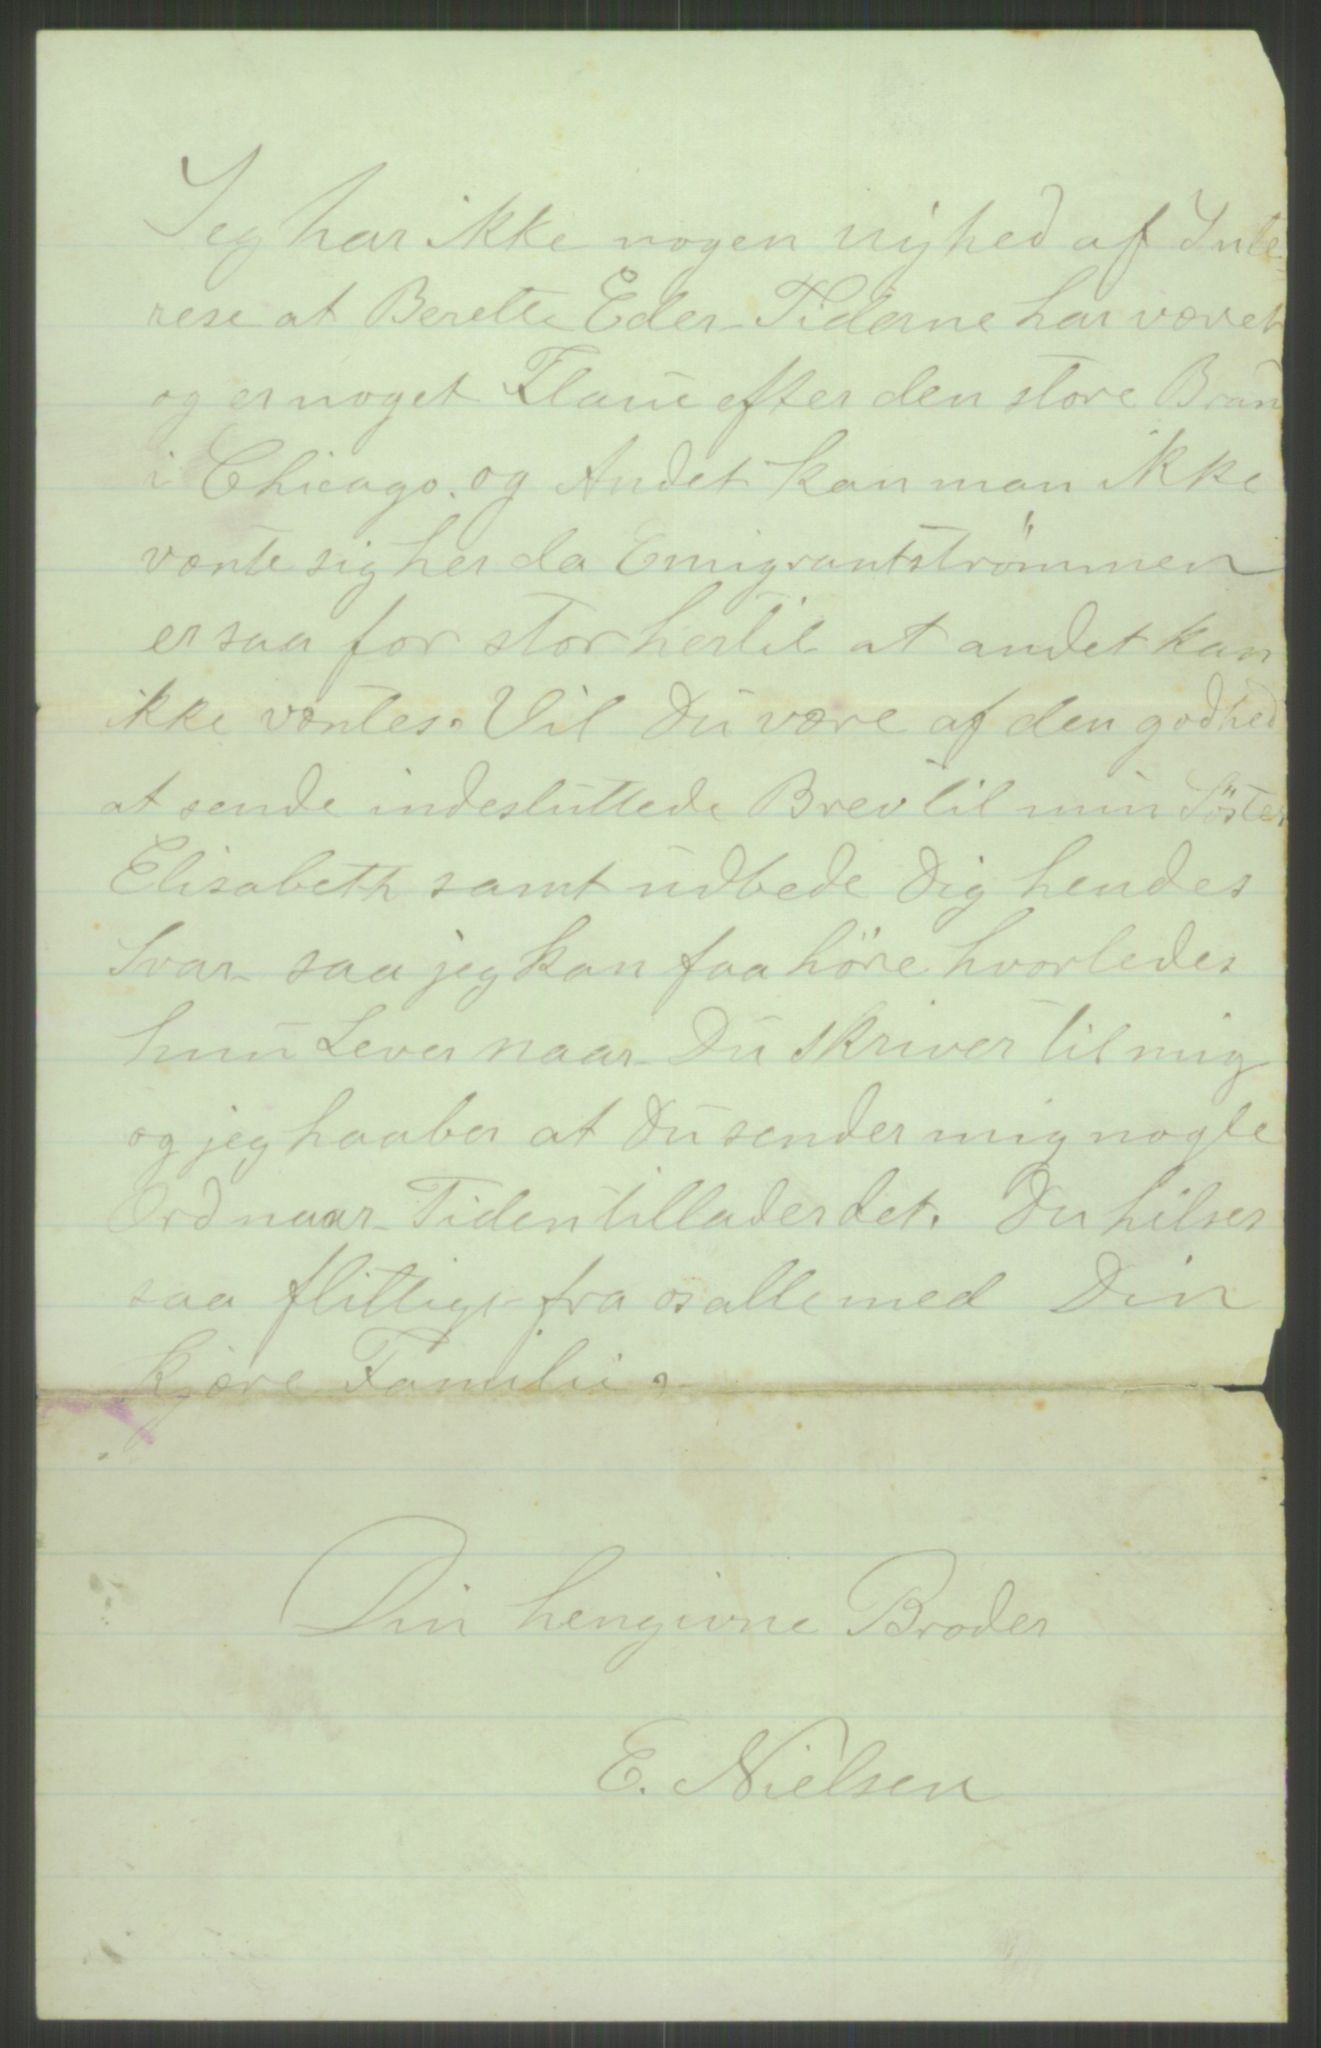 Jeg har ikke nogen nyhed af Inte-
rese at Berette Eder Tiderne har været
og er noget Flaue efter den store Bran
i Chicago. og Andet kan man ikke
vænte sig her da Emigrantströmmen
er saa for stor hertil at andet kan
ikke væntes. Vil Du være af den godhed
at sende indesluttede Brev til min Söster
Elisabeth samt udbede Dig hendes
Svar saa jeg kan faa höre hvorledes
hun Lever naar Du skriver til mig
og jeg haaber at Du sender mig nogle
Ord naar Tiden tillader det. Du hilser
saa flittigt fra os alle med Din
kjære Familie.
Din hengivne Broder
E. Nielsen